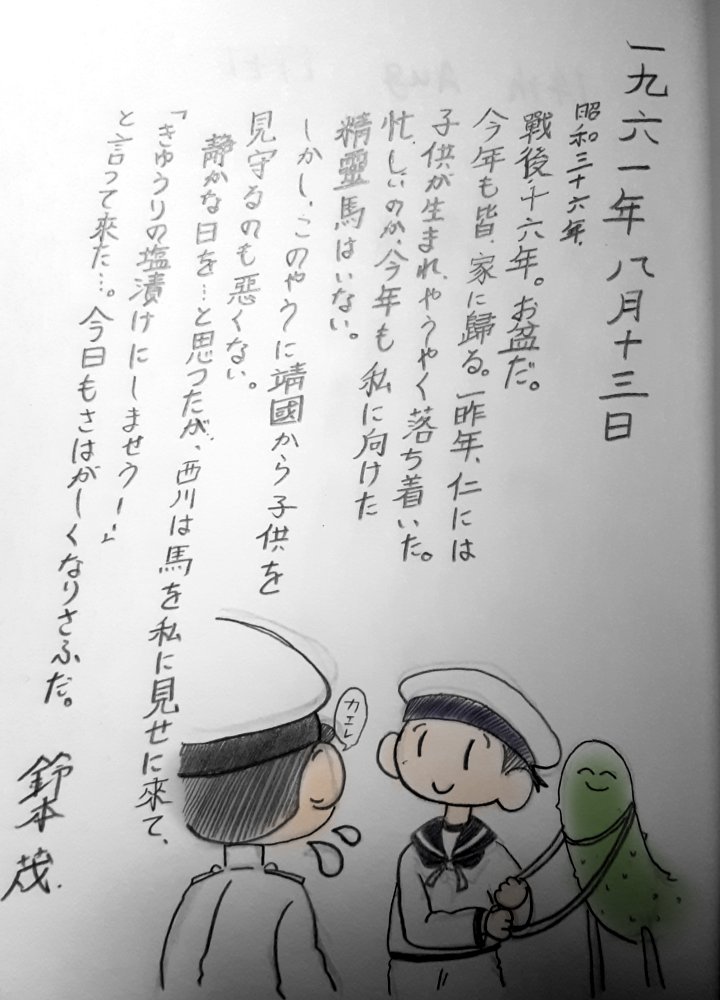 一九六一年 八月十三日
昭和三十六年、
戰後、十六年。お盆だ。
今年も皆、家に歸る。一昨年、仁には
子供が生まれ、やうやく落ち着いた。
忙しいのか、今年も私に向けた
精靈馬はいない。
しかし、このやうに靖國から子供を
見守るのも惡くない。
静かな日を…と思つたが、西川は馬を私に見せに來て、
「きゅうりの塩漬けにしませうー!」
と言って来た…。今日もさはがしくなりさふだ。
鈴木 茂.
カエレ